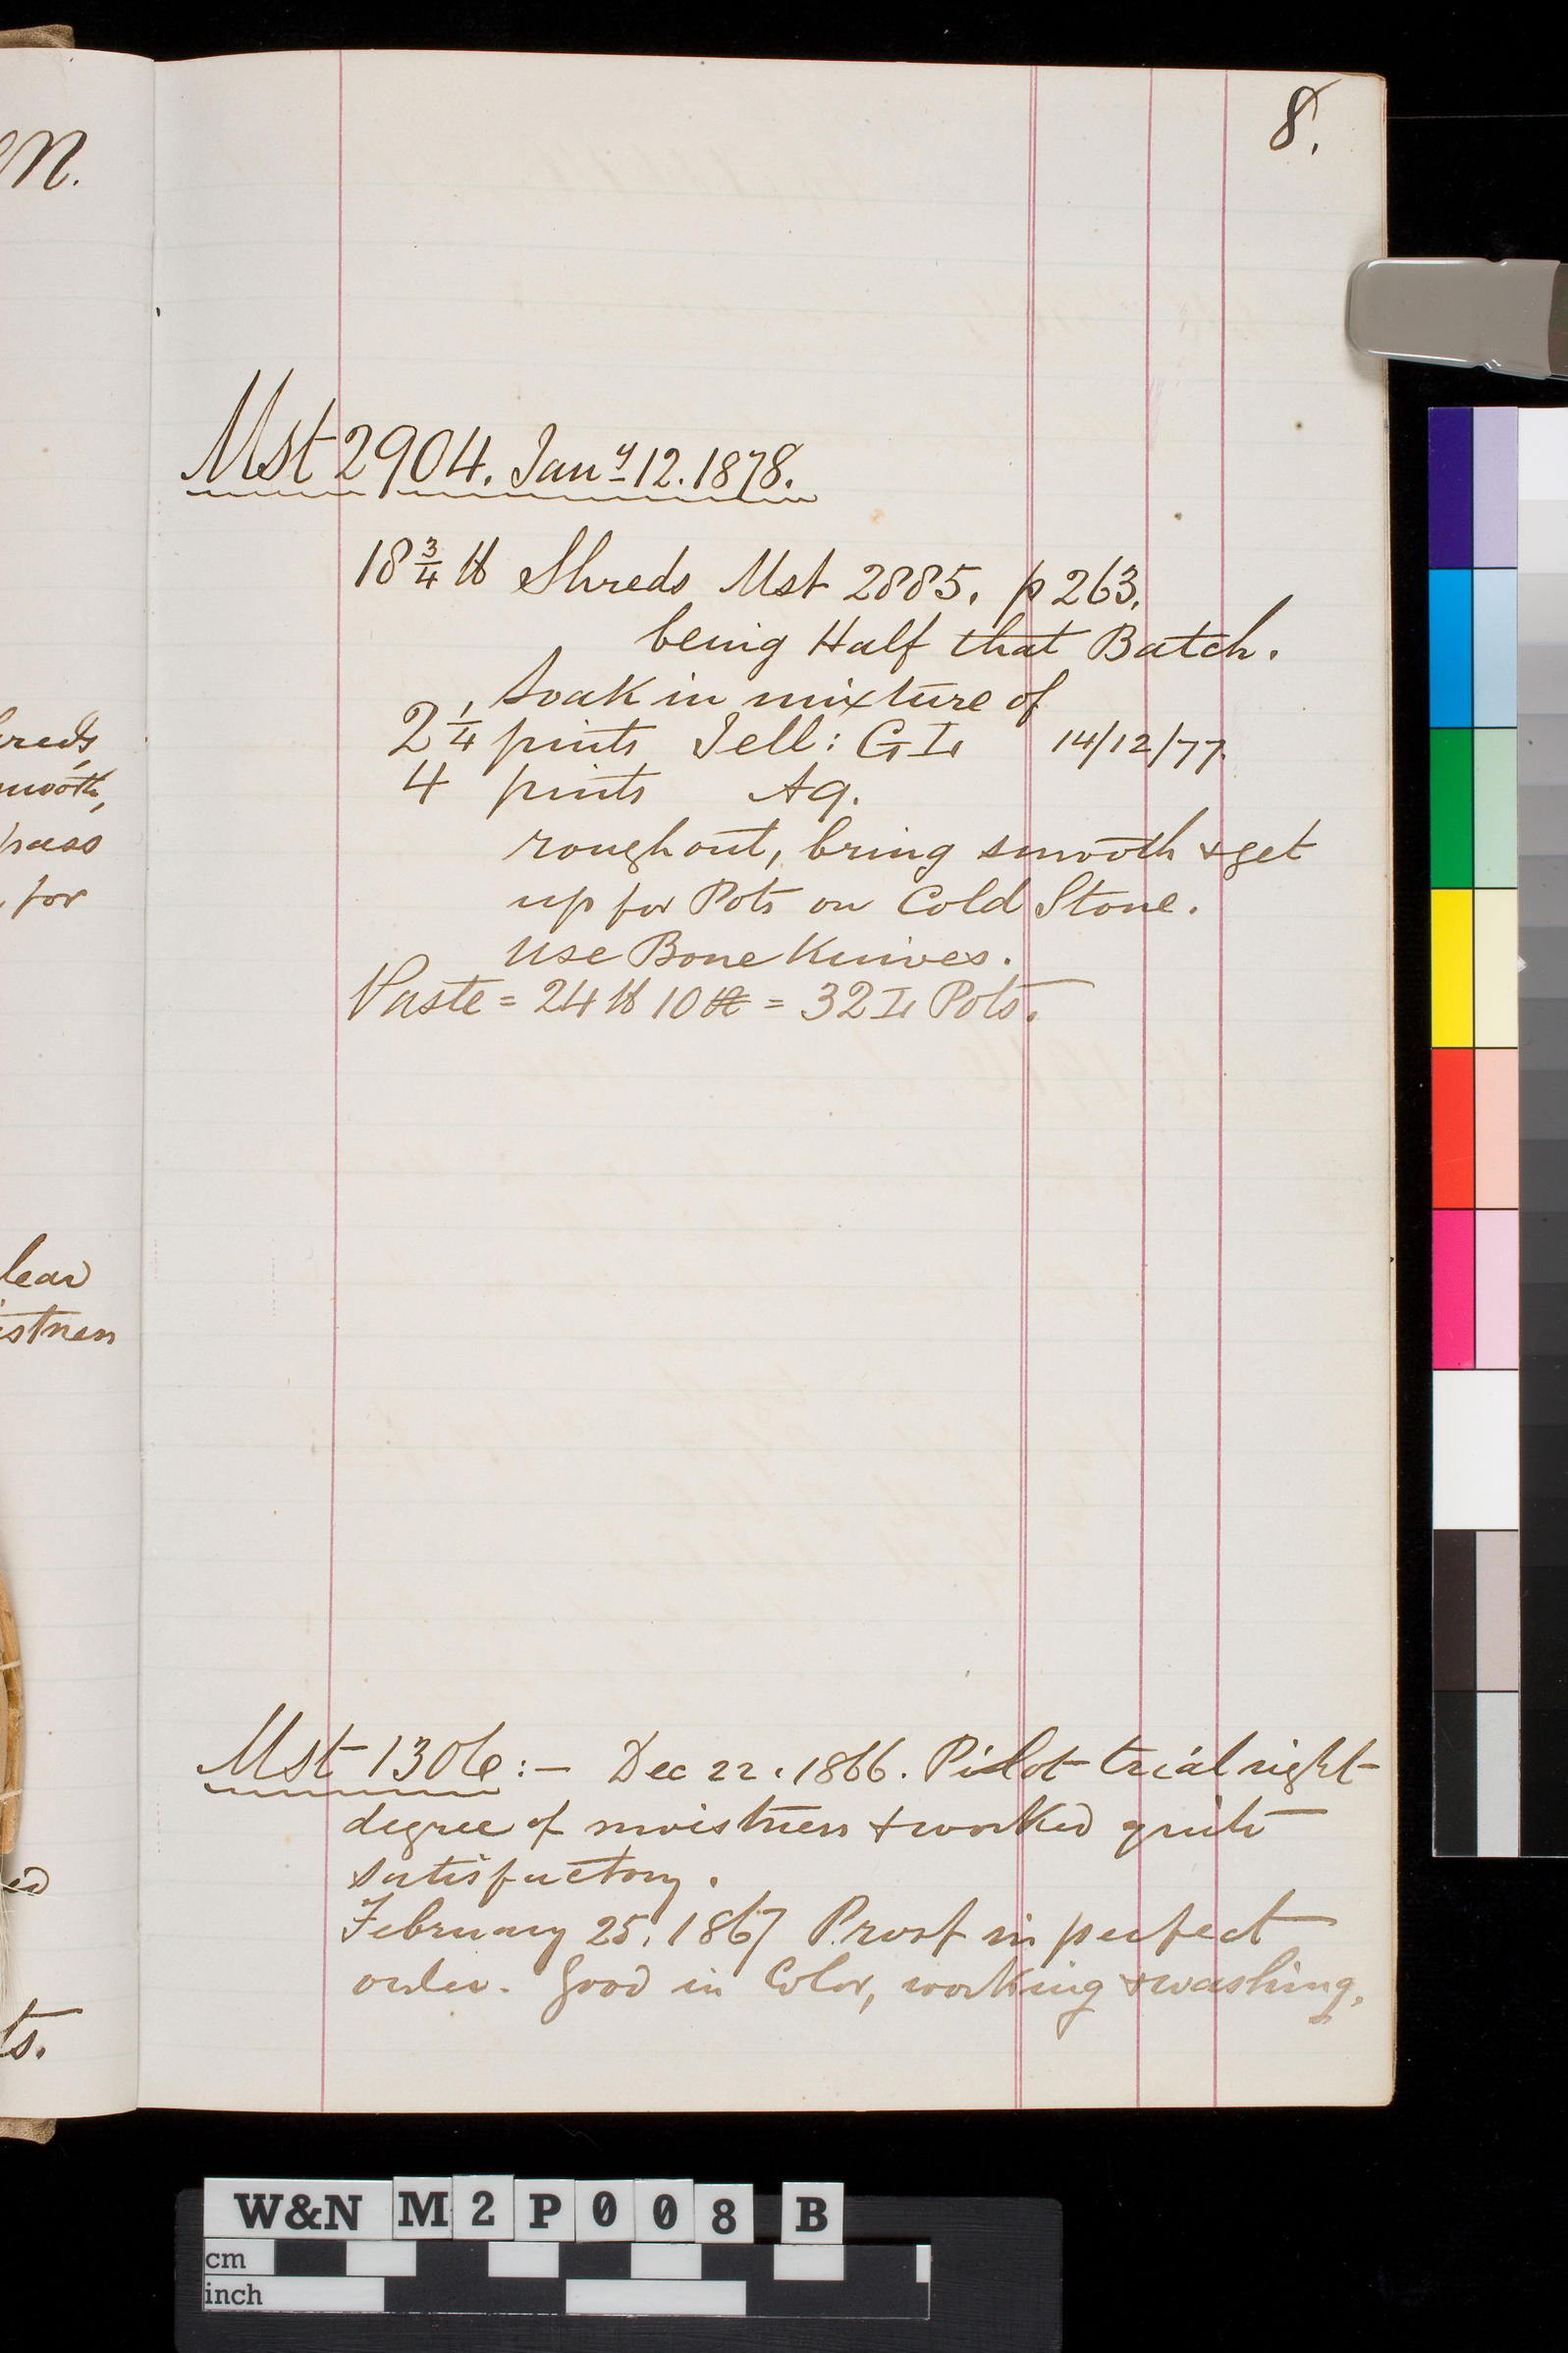 8.
Mst 2904. Jany 12. 1878.
18 3/4 lb Shreds Mst 2885. p 263.
being Half that Batch.
Soak in mixture of
2 1/4 pints Jell: G 14/12/77.
4 pints Aq.
rough out, bring smooth & get
up for Pots on Cold Stone.
Use Bone Knives.
Paste = 24 lb 10 = 32 Pots.
Mst 1306:- Dec 22. 1866. Pilot trial right
degree of moistness & worked quite
satisfactory.
February 25. 1867 Proof in perfect
order. Good in Color, working & washing.
N.
smooth,
pass
for
ts.
W&N M2P008 B
cm
inch